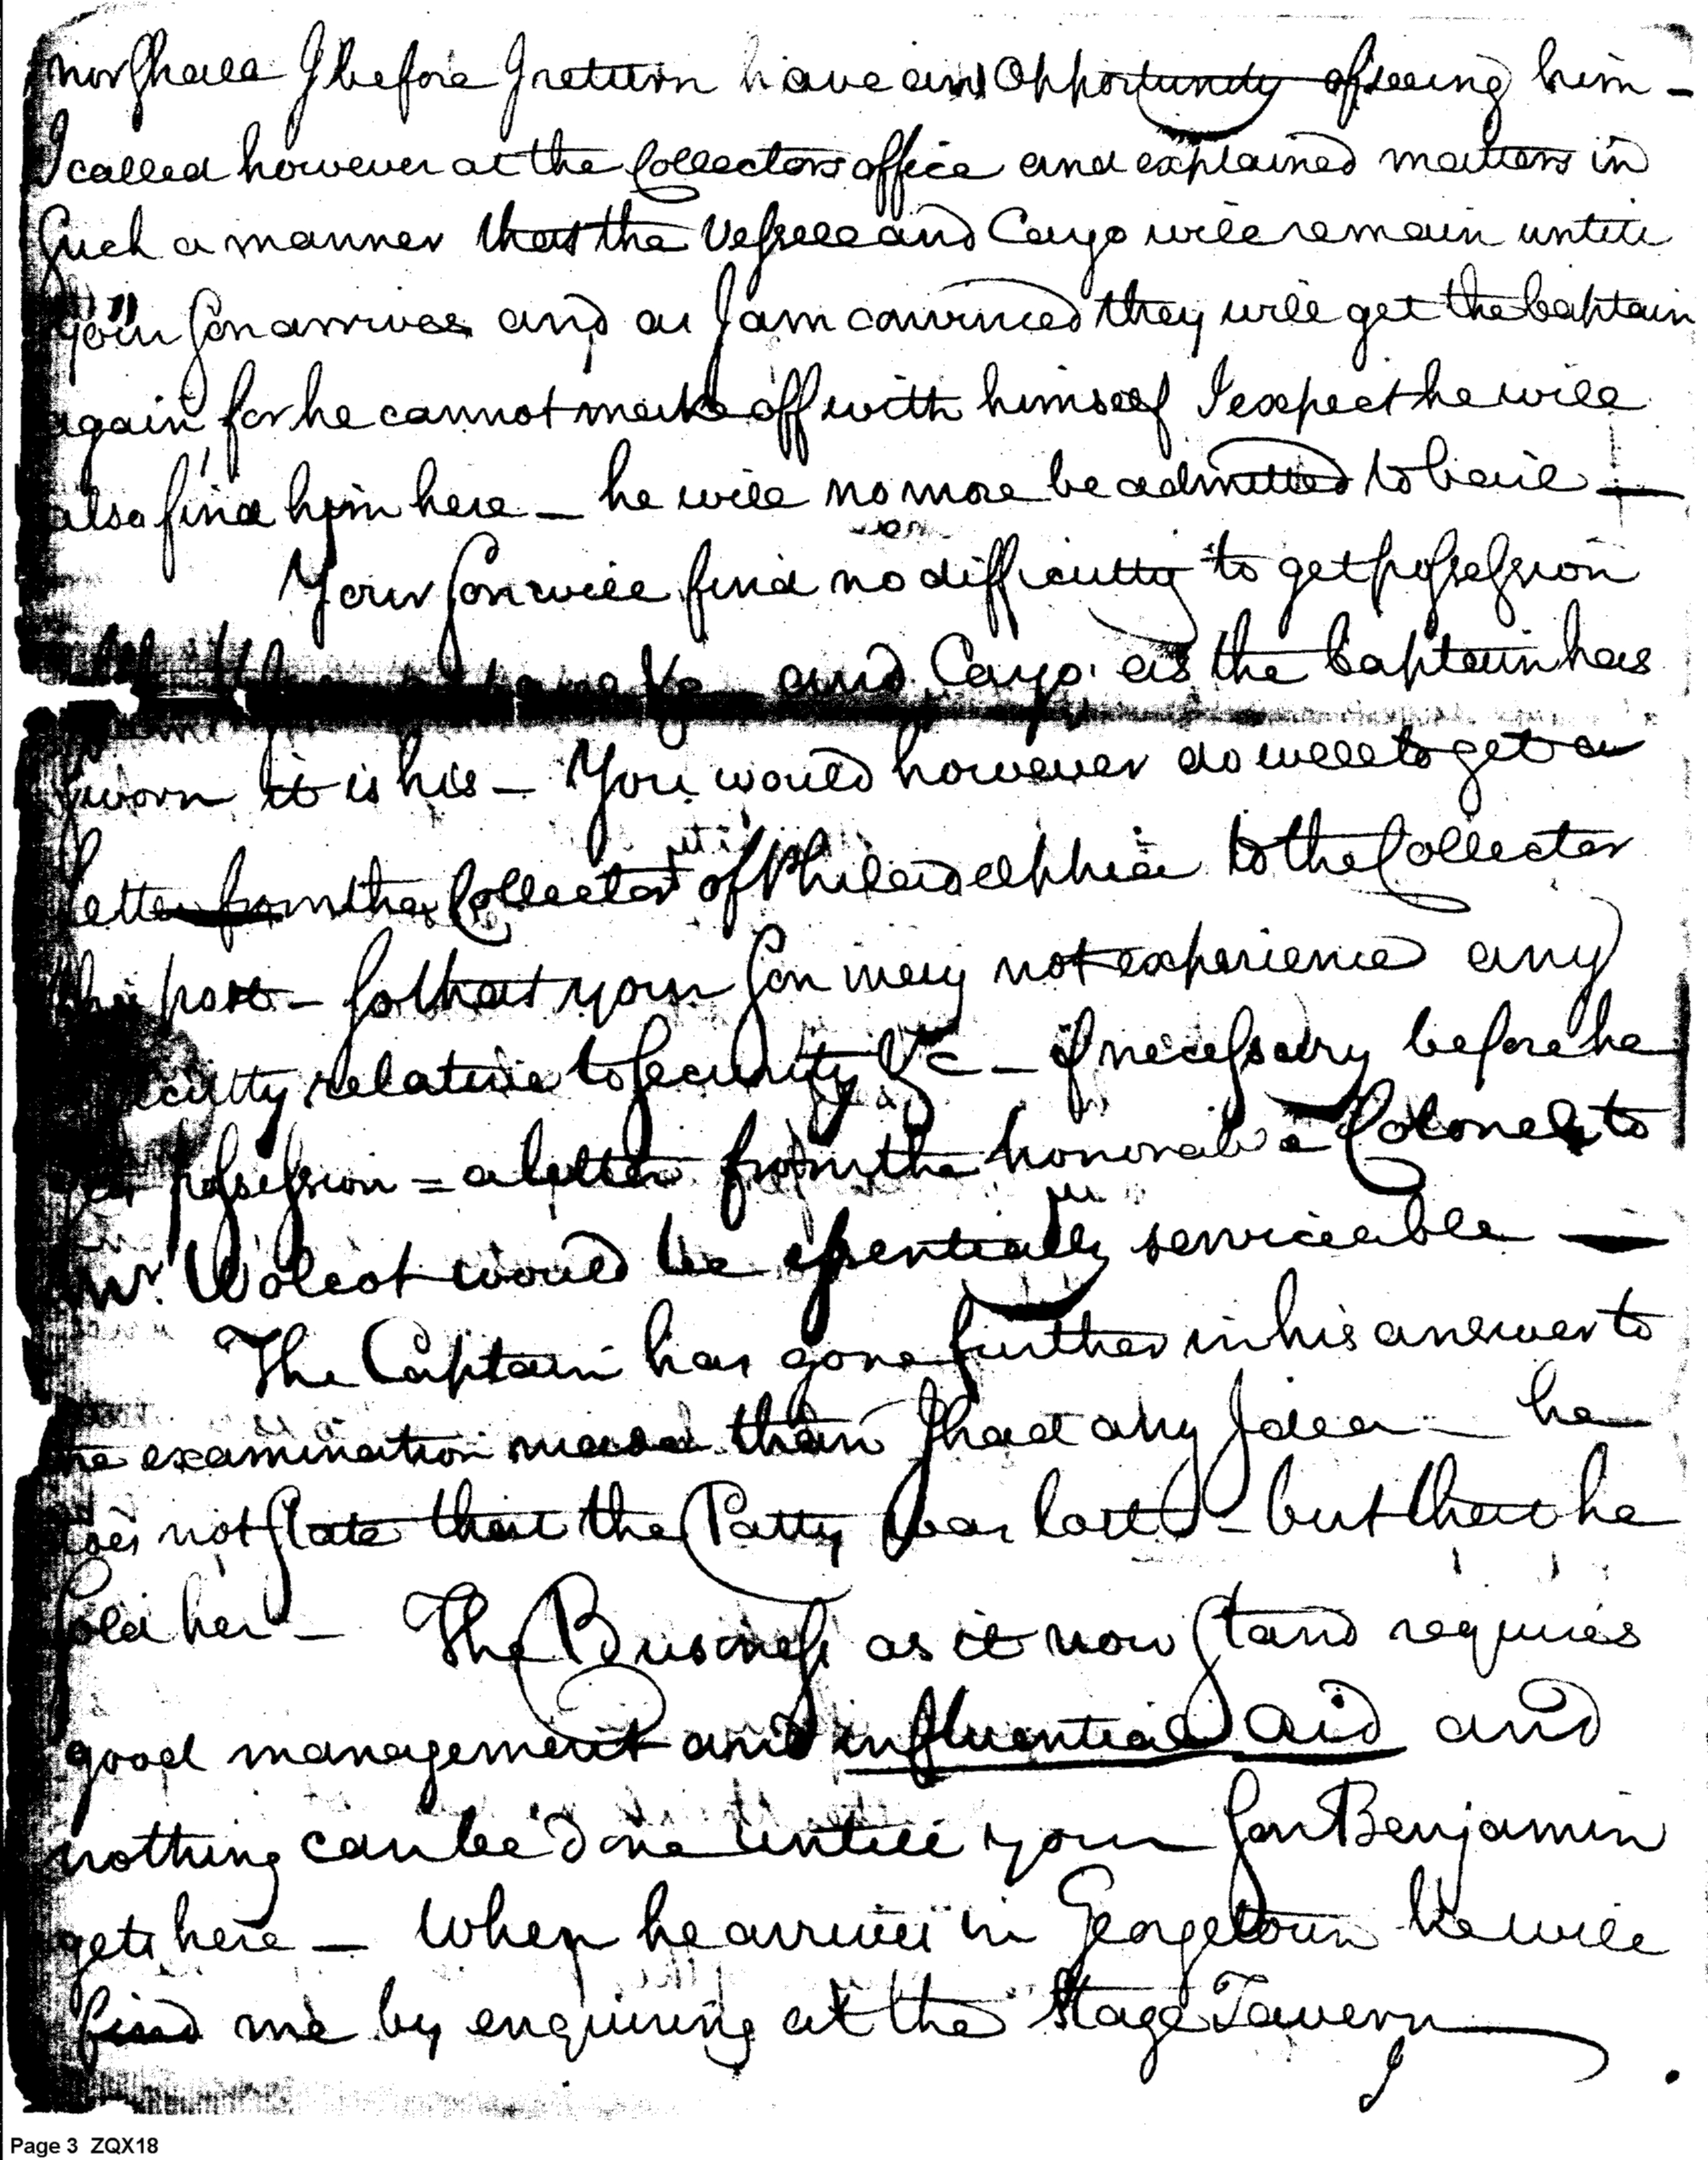 nor Shall I before I return have an Opportunity of seeing him –
I called however at the Collectors office and explained matters in
Such a manner that the Vessell and Cargo will remain untill
your Son arrives and as I am convinced they will get the Captain
again, for he cannot make off with himself I expect he will
also find him here – he will no more be admitted to bail –
Your Son will find no difficulty to get possession
and Cargo as the Captain has
Sworn it is his – You would however do well to get a
letter from the Collector of Philadelphia to the Collector
this port – So that your Son may not experience any
relative to Security &c – if necessary before he
get possession = a letter from the honorable Colonel to
Mr. Wolcot would be essentially serviceable –
The Captain has gone further in his answer to
the examination made than I had any Idea – he
does not State that the Patty was lost – but that he
Sold her – The Business as it now Stand requires
good management and influential aid and
nothing can be done untill your Son Benjamin
gets here – When he arrives in Georgetown he will
find me by enquiring at the Stage Tavern
I
Page 3 ZQX18